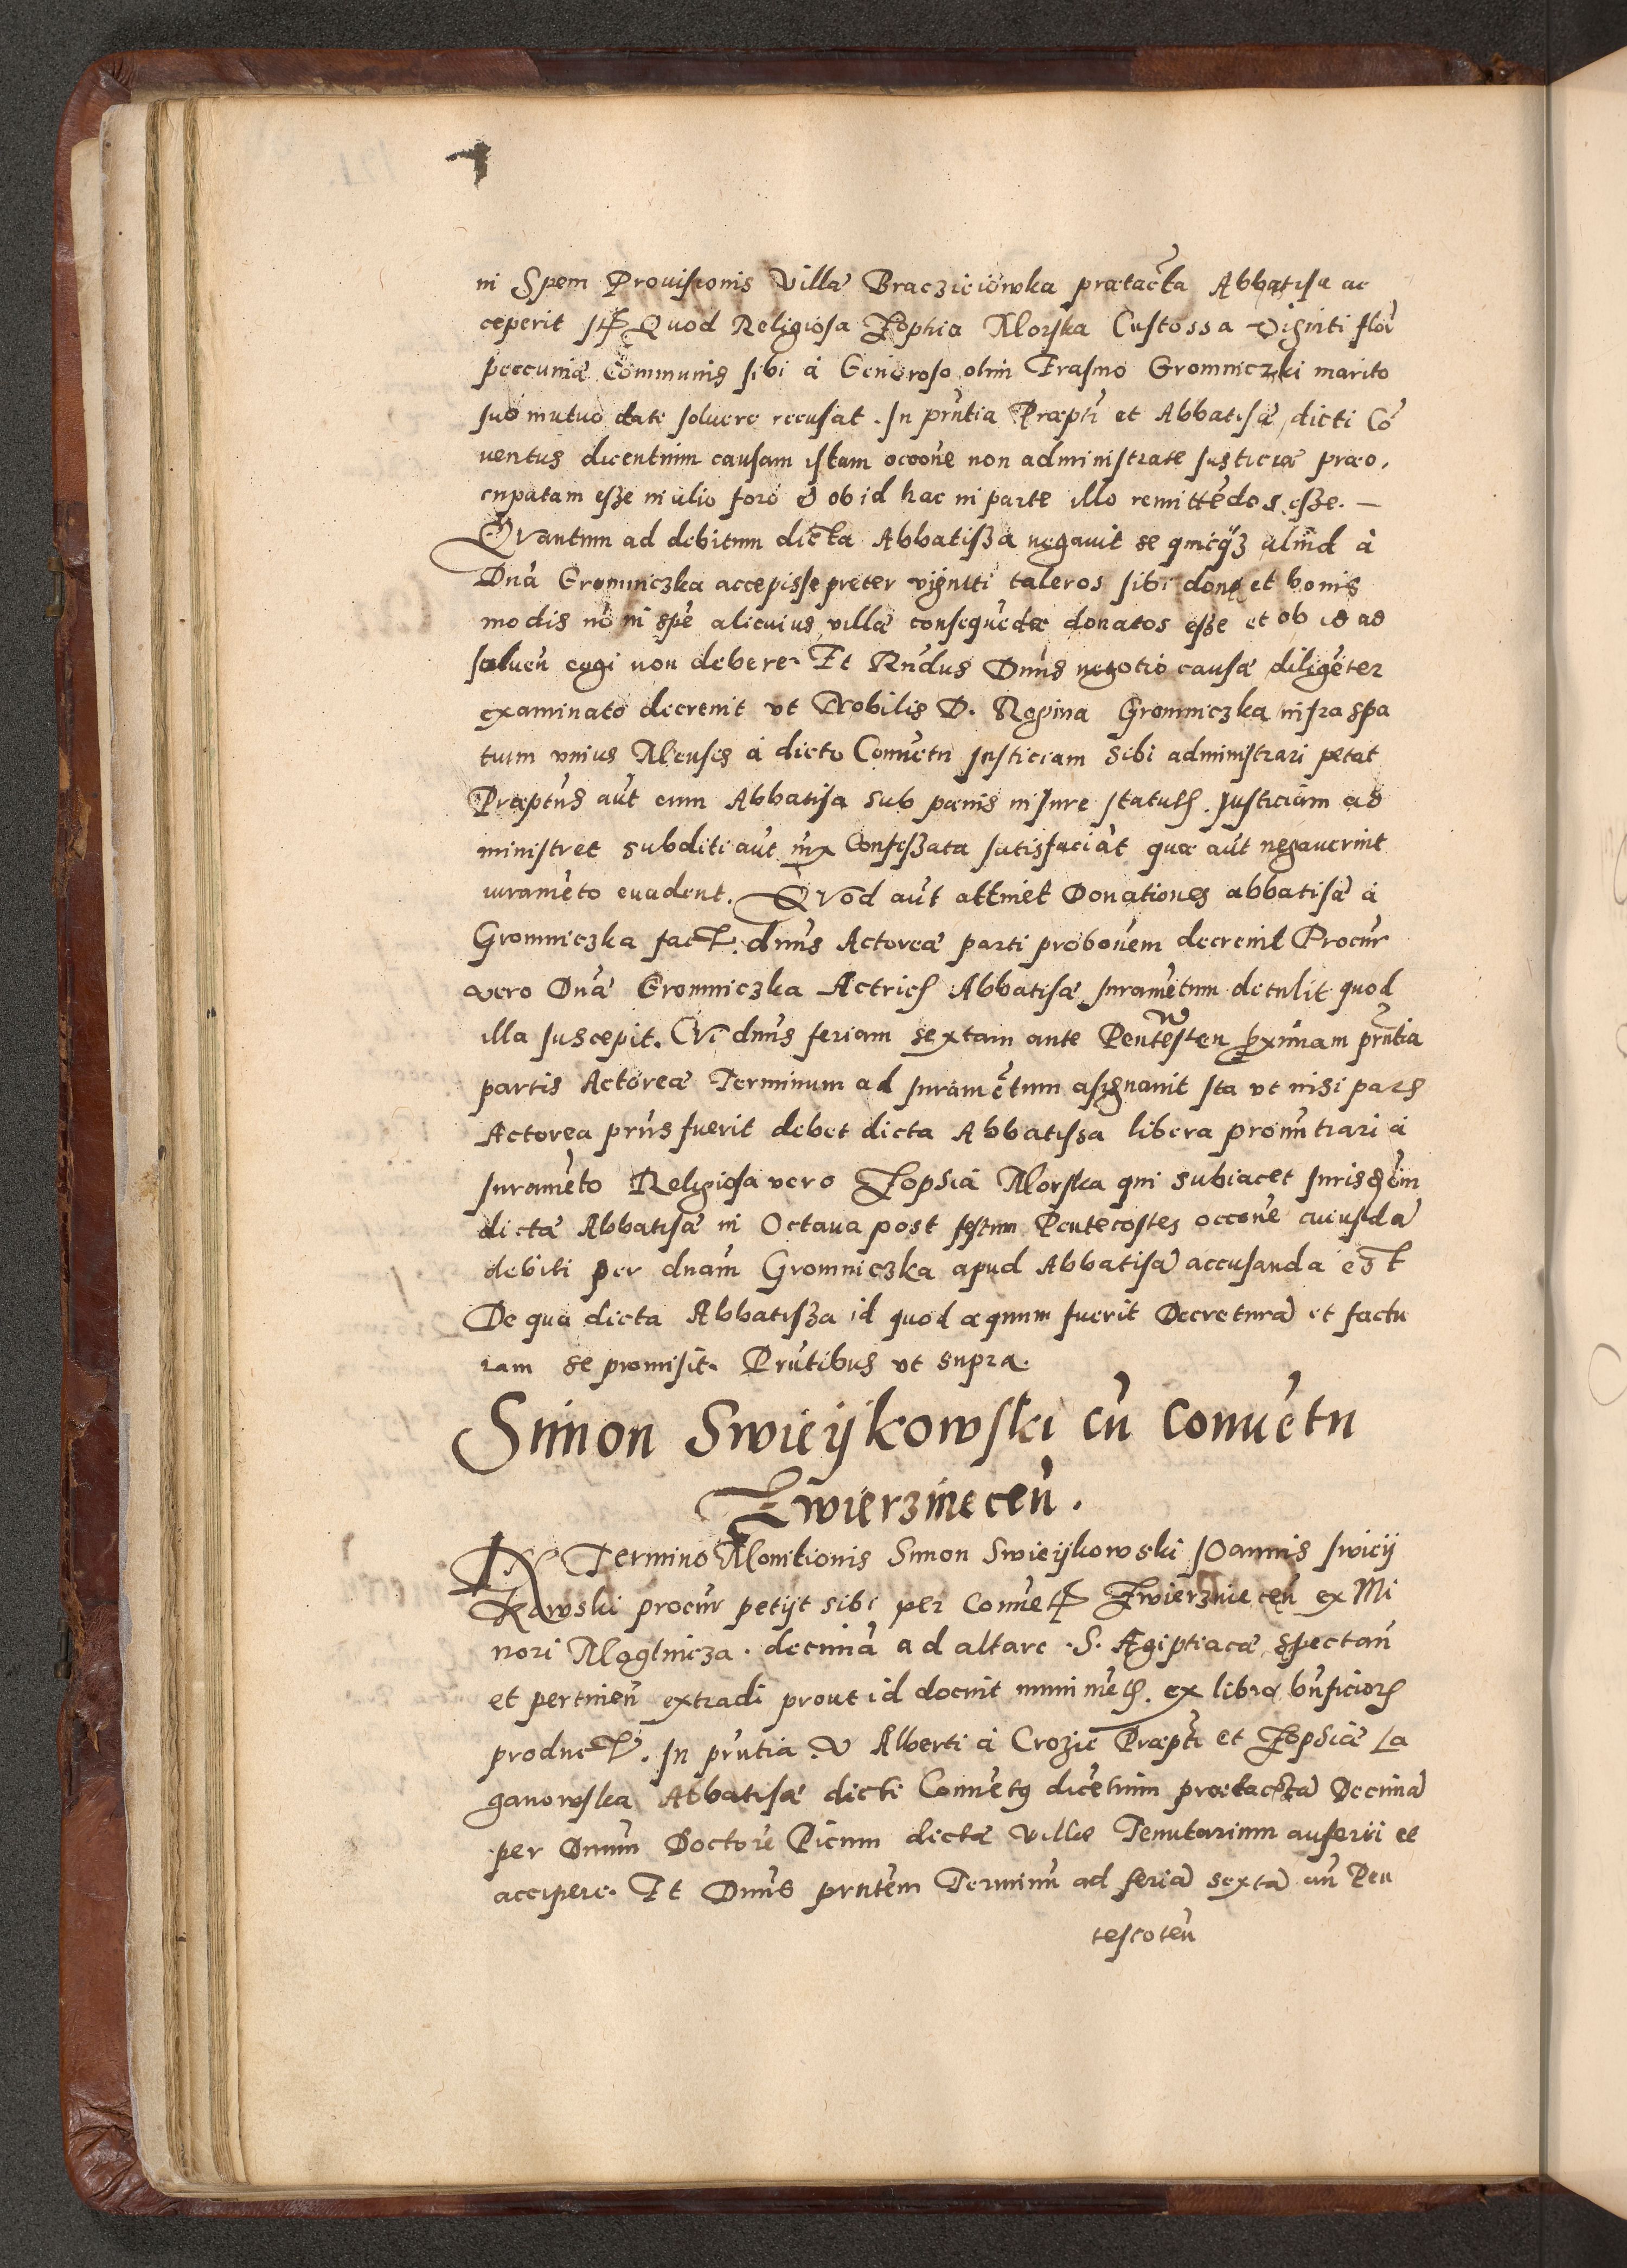 in Spem Prouisionis Villæ Bracziciowka prætacta Abbatisa ac
ceperit Itē Quod Religiosa Zophia Morska Custossa Viginti flōr
peccuniæ Communis sibi à Generoso olim Erasmo Gromniczki marito
suo mutuo date soluere recusat. In prn̄tia Præpti et Abbatisæ dicti Cō
uentus dicentium causam istam occōne non administrate Iusticiæ præo,
cupatam esze in alio foro & ob id hac in parte illo remittēdos esze. —
Qvantum ad debitum dicta Abbatisza negauit se quicq̃z aliud à
Dnā Gromniczka accepisse preter viginti taleros sibi dono et bonis
modis nō in spē alicuius villæ consequēdæ donatos esze et ob id ad
soluen̄ cogi non debere. Et Rn̄dus Dnūs negotio causæ diligēter
examinato decreuit vt Nobilis D. Regina Gromniczka infra spa
tium vnius Mensis à dicto Conuētu Iusticiam sibi administrari petat
Præptūs aūt cum Abbatisa sub pœnis in Iure statutis. Iusticiam ad
ministret subditi aūt iux Confeszata satisfaciāt quæ aūt negauerint
iuramēto euadent. Qvod aūt attinet Donationes abbatisæ à
Gromniczka fact. dnūs Actoreæ parti probōnem decreuit Procūr
vero Dnæ Gromniczka Actricis Abbatisæ Iuramētum detulit quod
illa suscepit. Cvi dnūs feriam sextam ante Pentesten pxīmam prn̄tia
partis Actoreæ Terminum ad Iuramētum asignauit Ita vt nisi pars
Actorea priūs fuerit debet dicta Abbatissa libera pronūtiari à
Iuramēto Religiosa vero Zophia Morska qui subiacet Iurisdōni
dictæ Abbatisæ in Octaua post festum Pentecostes occōne cuiusdā
debiti per dnām Gromniczka apud Abbatisā accusanda est
De qua dicta Abbatisza id quod æquum fuerit Decreturā et factu
ram se promisit. Prn̄tibus vt supra.
Simon Swieykowski cū Conuētu
Zwierzinecen̄.
IN Termino Monitionis Simon Swieykowski Ioannis swiey
Kowski procūr petijt sibi per Conuēt Zwierzniecen̄ ex Mi
nori Mogtnicza. decimā ad altare .S. Ægiptiacæ spectan̄
et pertinen̄ extradi prout id docuit munimētis. ex libro bn̄ficioris
product. In prn̄tia V Alberti à Crozie Præpti et Zophiæ La
ganowska Abbatisæ dicti Conuētus dicētium prætactā Decimā
per Dnūm Doctorē Picum dictæ villæ Tenutarium auferri et
accipere. Et Dnūs prn̄tem Terminū ad feriā sextā an̄ Pen
tescoten̄